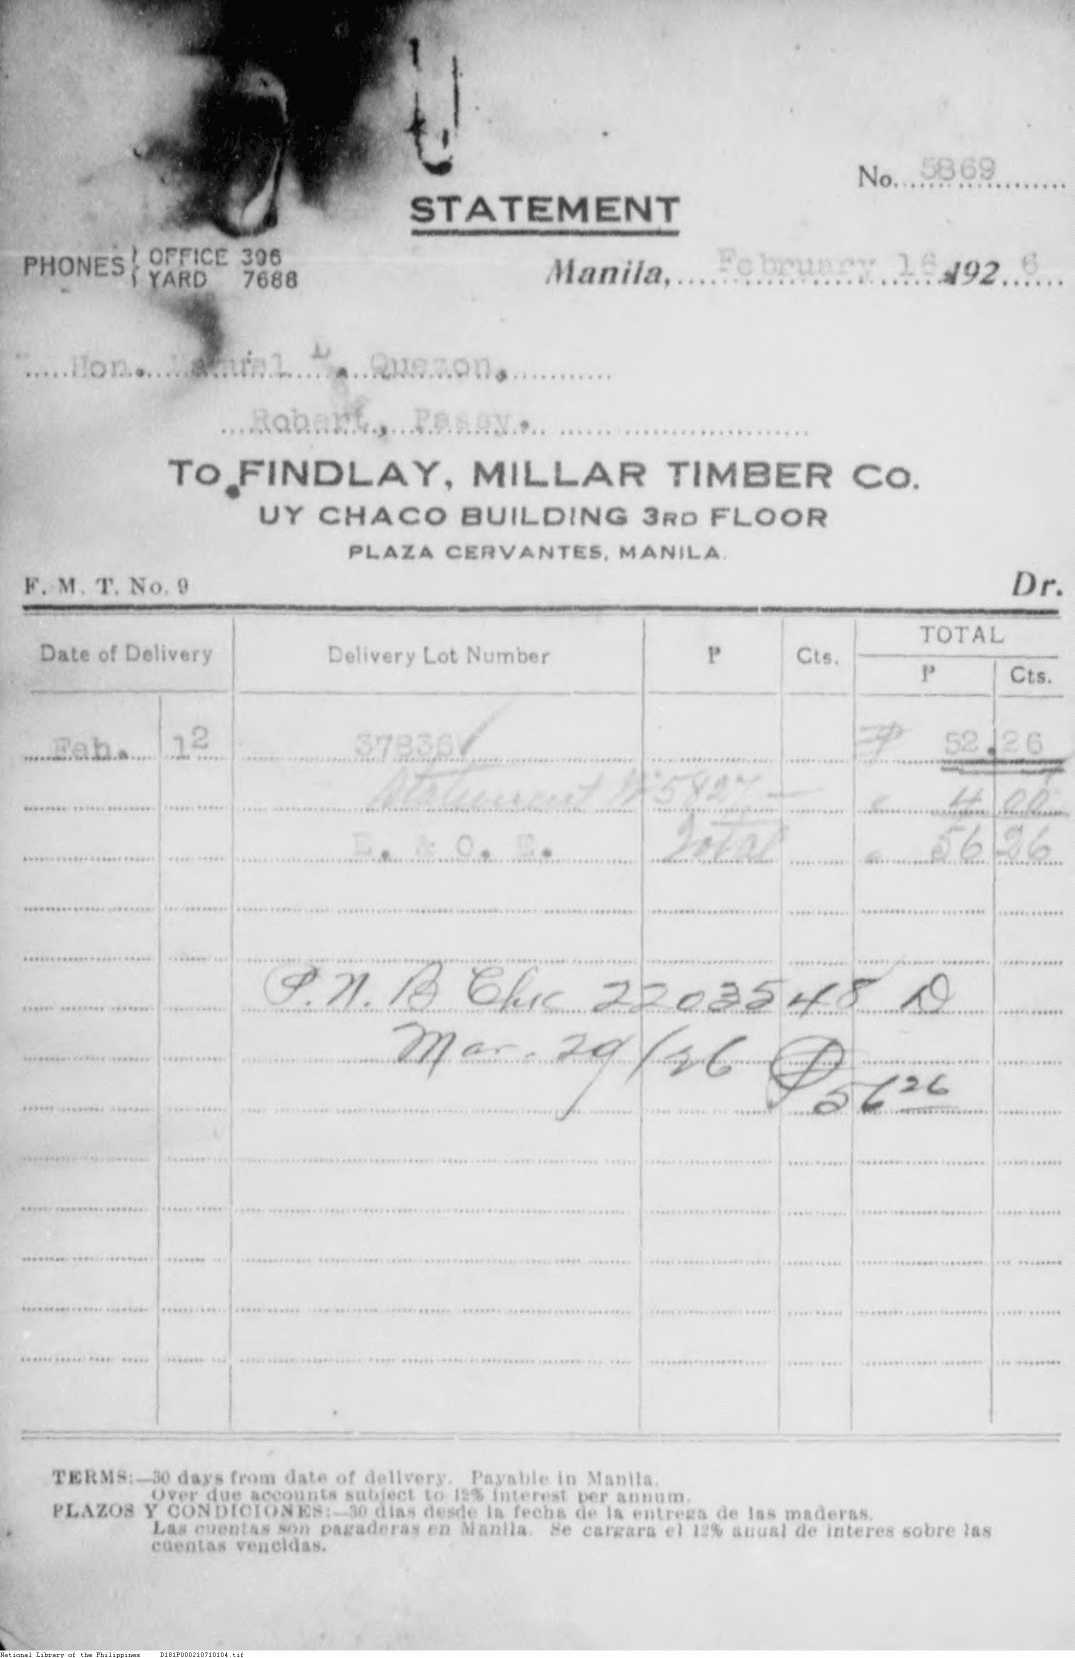 No. 5869
STATEMENT
PHONES { OFFICE 396
YARD 7688
Manila, February 16, 1926
Hon. L. Quezon,
Robert, Pasay.
TO FINDLAY, MILLAR TIMBER CO.
UY CHACO BUILDING 3RD FLOOR
PLAZA CERVANTES, MANILA.
F. M. T. No. 9 Dr.
Date of Delivery Delivery Lot Number P Cts. TOTAL
P Cts.
Feb. 12 37836 ₱ 52.26
Statement Nº 5827 — " 4 00
E. & O. E. Total " 56 26
P.N.B Chc 2203548 D
Mar. 29/26 ₱56 26
TERMS:—30 days from date of delivery. Payable in Manila.
Over due accounts subject to 12% interest per annum.
PLAZOS Y CONDICIONES:—30 dias desde la fecha de la entrega de las maderas.
Las cuentas son pagaderas en Manila. Se cargara el 12% anual de interes sobre las
cuentas vencidas.
National Library of the Philippines D181P000210710104.tif